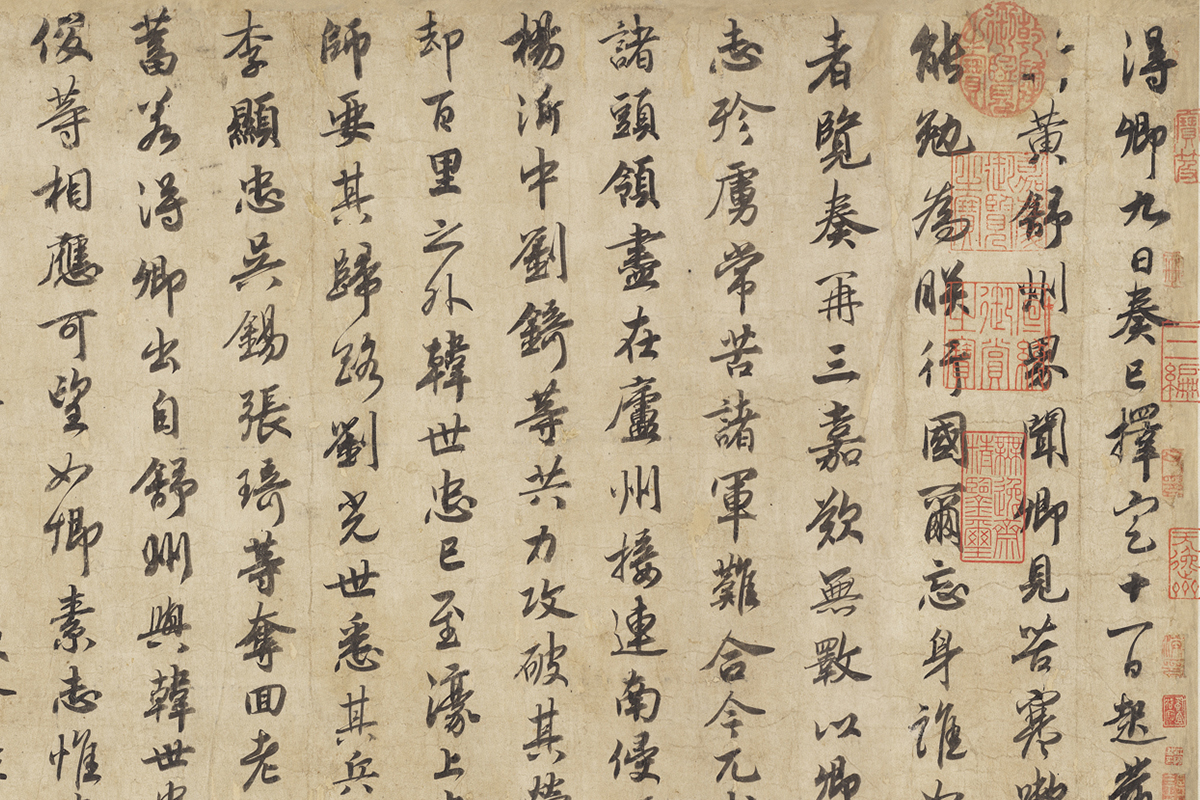 得卿九日奏已擇定十一日起發
黃舒州界聞卿見苦寒嗽
能勉為朕行國爾忘身誰如
者覽奏再三嘉歎無斁以卿
志殄虜常苦諸軍難合今兀
諸頭領盡在廬州接連南侵
楊沂中劉錡等共力攻破其
却百里之外韓世忠已至濠上
師要其歸路劉光世悉其兵
李顯忠吳錫張琦等奪回老
蓄若得卿出自舒州與韓世忠
俊等相應可望如卿素志惟
乾隆御覽之寶
嘉慶御覽之寶
無逸齋精鑒璽